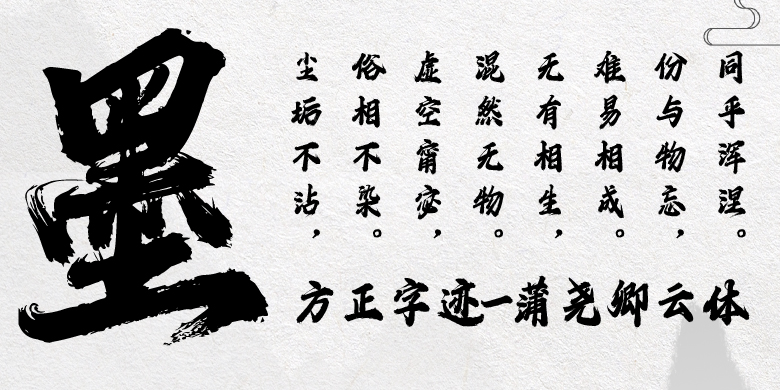 墨
尘垢不沾，
俗相不染。
虚空甯宓，
混然无物。
无有相生，
难易相成。
份与物忘，
同乎浑涅。
方正字迹-蒲尧卿云体